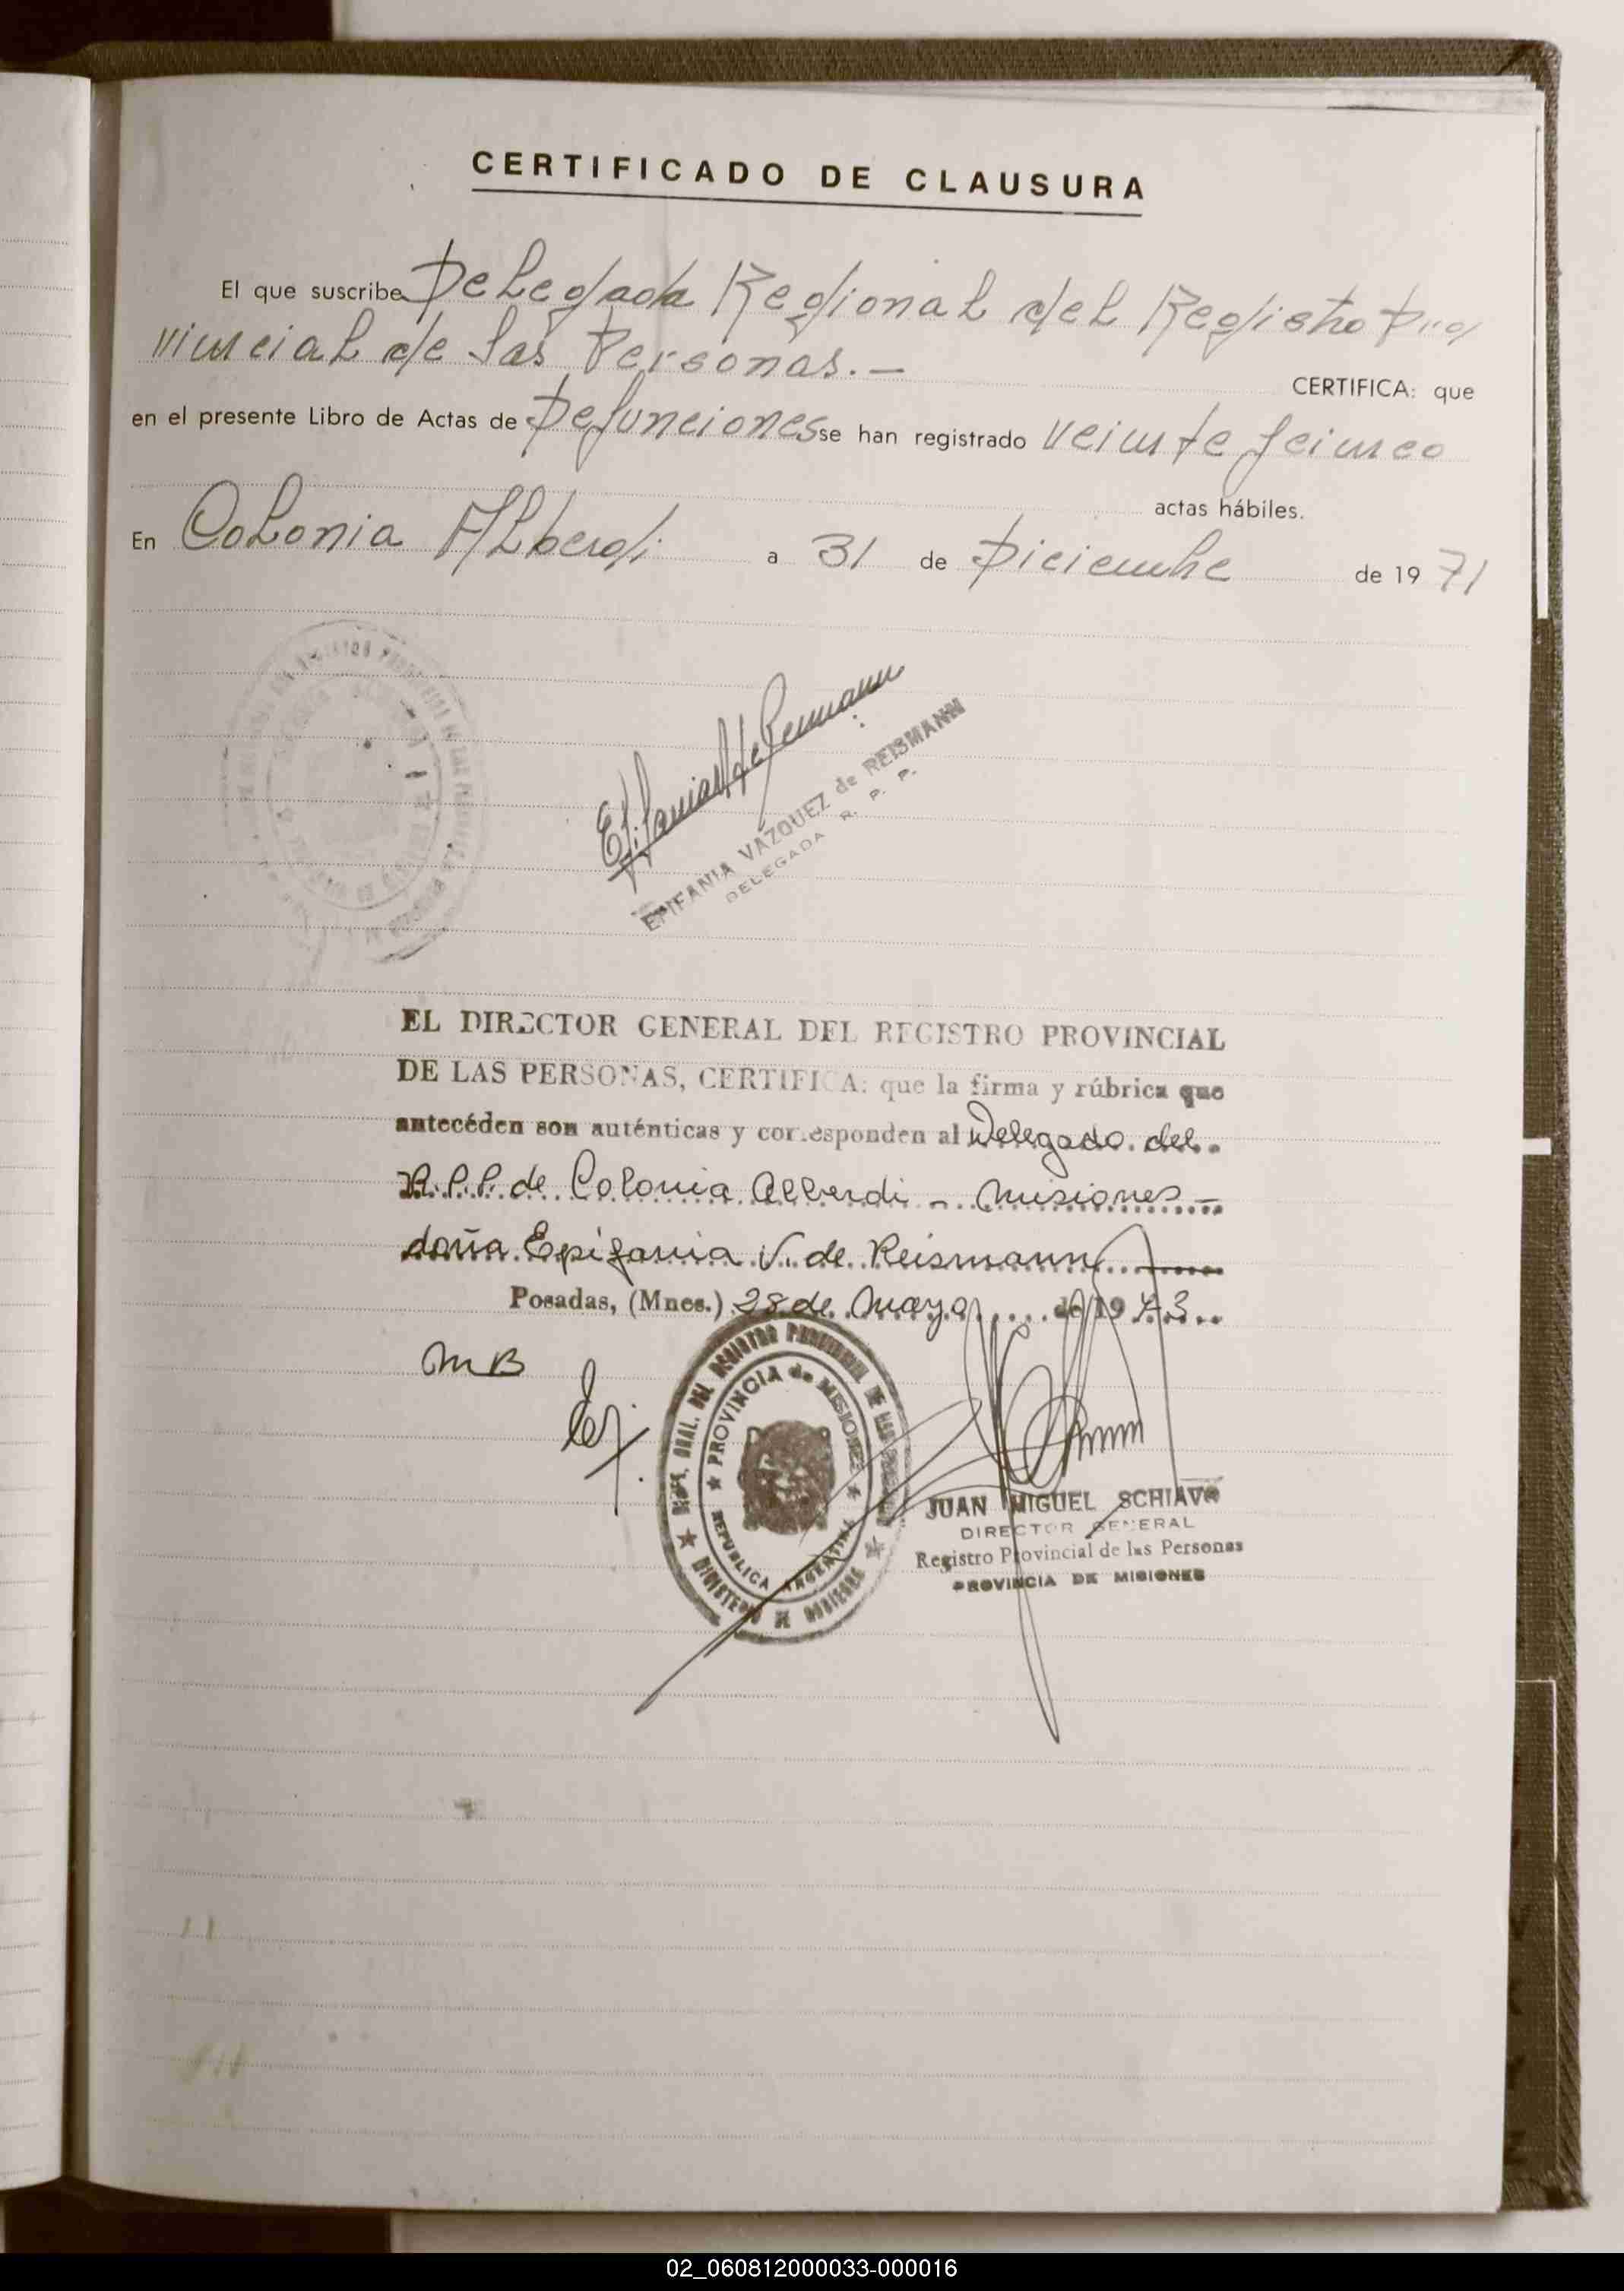 CERTIFICADO DE CLAUSURA
El que suscribe Delegada Regional del Registro Pro
vincial de las Personas.—
CERTIFICA: que
en el presente Libro de Actas de Defunciones se han registrado veinte y cinco
actas hábiles.
En Colonia Alberdi a 31 de Diciembre de 1971
Epifania V. de Reismann
EPIFANIA VAZQUEZ de REISMANN
DELEGADA R. P. P.
EL DIRECTOR GENERAL DEL REGISTRO PROVINCIAL
DE LAS PERSONAS, CERTIFICA: que la firma y rúbrica que
antecéden son auténticas y corresponden al Delegado del
R.P.P. de Colonia Alberdi - Misiones -
doña Epifania V. de Reismann
Posadas, (Mnes.) 28 de Mayo de 1973
MB
DIR. GRAL. DEL REGISTRO PROVINCIAL DE LAS PERSONAS
PROVINCIA de MISIONES
REPUBLICA ARGENTINA
MINISTERIO DE GOBIERNO
JUAN MIGUEL SCHIAVO
DIRECTOR GENERAL
Registro Provincial de las Personas
PROVINCIA DE MISIONES
02_060812000033-000016